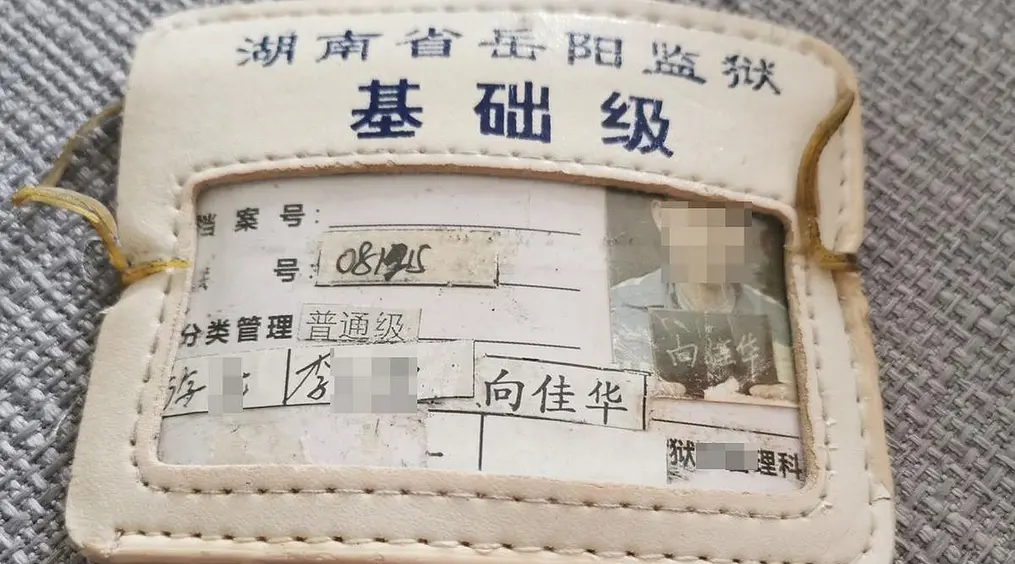 湖南省岳阳监狱
基础级
档案号:
号: 08
分类管理 普通级
李 向佳华
向佳华
狱 理科